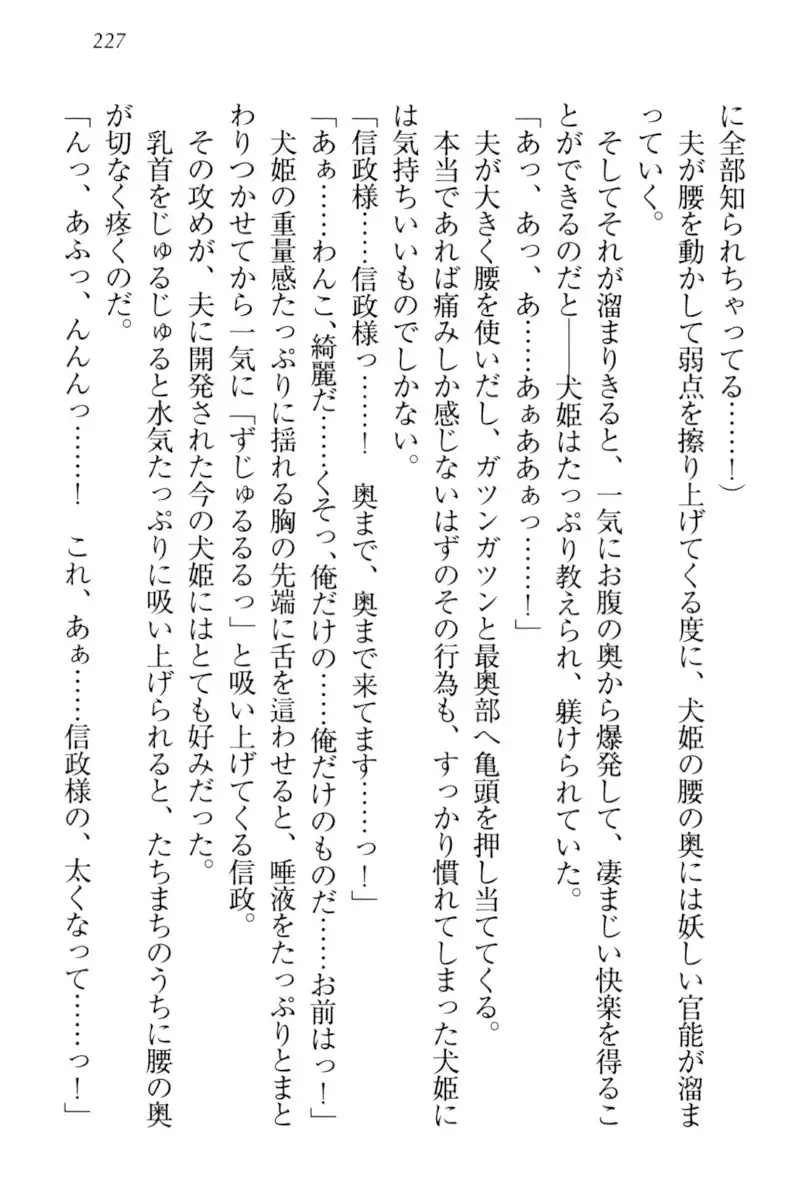 227
に全部知られちゃってる……！）
　夫が腰を動かして弱点を擦り上げてくる度に、犬姫の腰の奥には妖しい官能が溜ま
っていく。
　そしてそれが溜まりきると、一気にお腹の奥から爆発して、凄まじい快楽を得るこ
とができるのだと――犬姫はたっぷり教えられ、躾けられていた。
「あっ、あっ、あ……あぁああぁっ……！」
　夫が大きく腰を使いだし、ガツンガツンと最奥部へ亀頭を押し当ててくる。
　本当であれば痛みしか感じないはずのその行為も、すっかり慣れてしまった犬姫に
は気持ちいいものでしかない。
「信政様……信政様っ……！　奥まで、奥まで来てます……っ！」
「あぁ……わんこ、綺麗だ……くそっ、俺だけの……俺だけのものだ……お前はっ！」
　犬姫の重量感たっぷりに揺れる胸の先端に舌を這わせると、唾液をたっぷりとまと
わりつかせてから一気に「ずじゅるるるっ」と吸い上げてくる信政。
　その攻めが、夫に開発された今の犬姫にはとても好みだった。
　乳首をじゅるじゅると水気たっぷりに吸い上げられると、たちまちのうちに腰の奥
が切なく疼くのだ。
「んっ、あふっ、んんんっ……！　これ、あぁ……信政様の、太くなって……っ！」